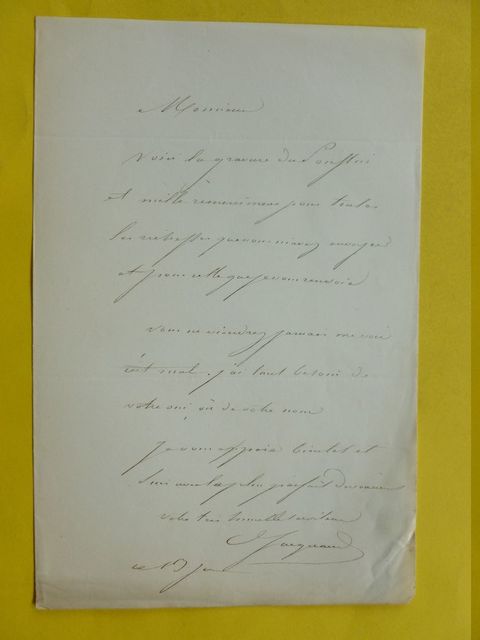 Monsieur
Voici la gravure du Poussin
et mille remerciemens pour toutes
les richesses que vous m'avez envoyées
et pour celle que je vous renvoie
vous ne viendrez jamais me voir
c'est mal. j'ai tant besoin de
votre oui, ou de votre non
Je vous espère bientôt et
suis avec la plus parfait
votre très humble serviteur
Jacquand